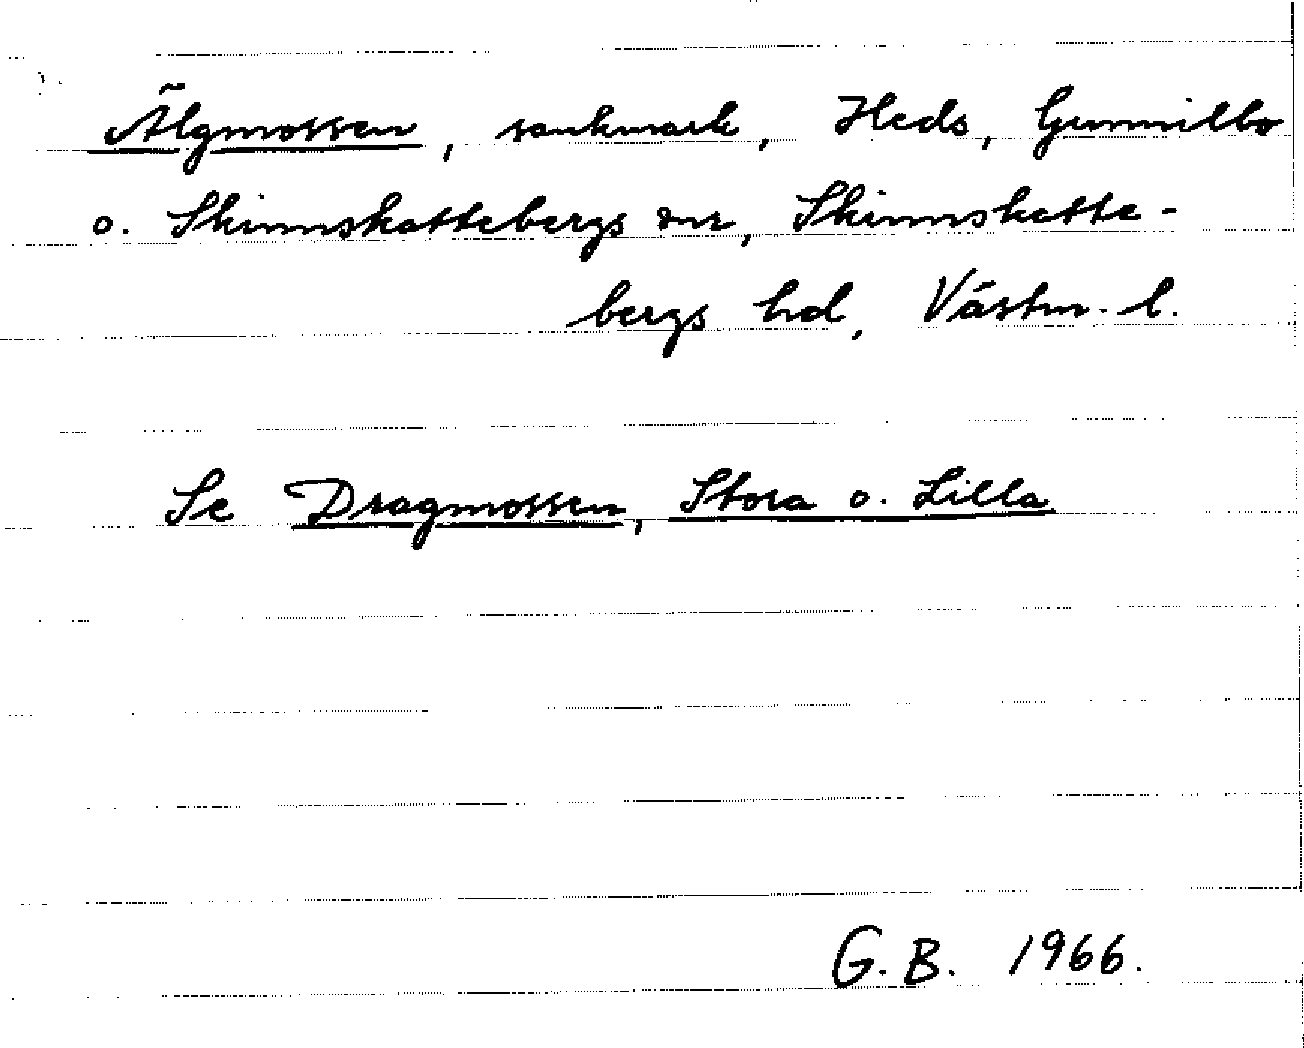 Älgmossen, sankmark, Heds, Gunnilbo
o. Skinnskattebergs snr, Skinnskatte-
bergs hd, Västm. l.
Se Dragmossen, Stora o. Lilla
G.B. 1966.